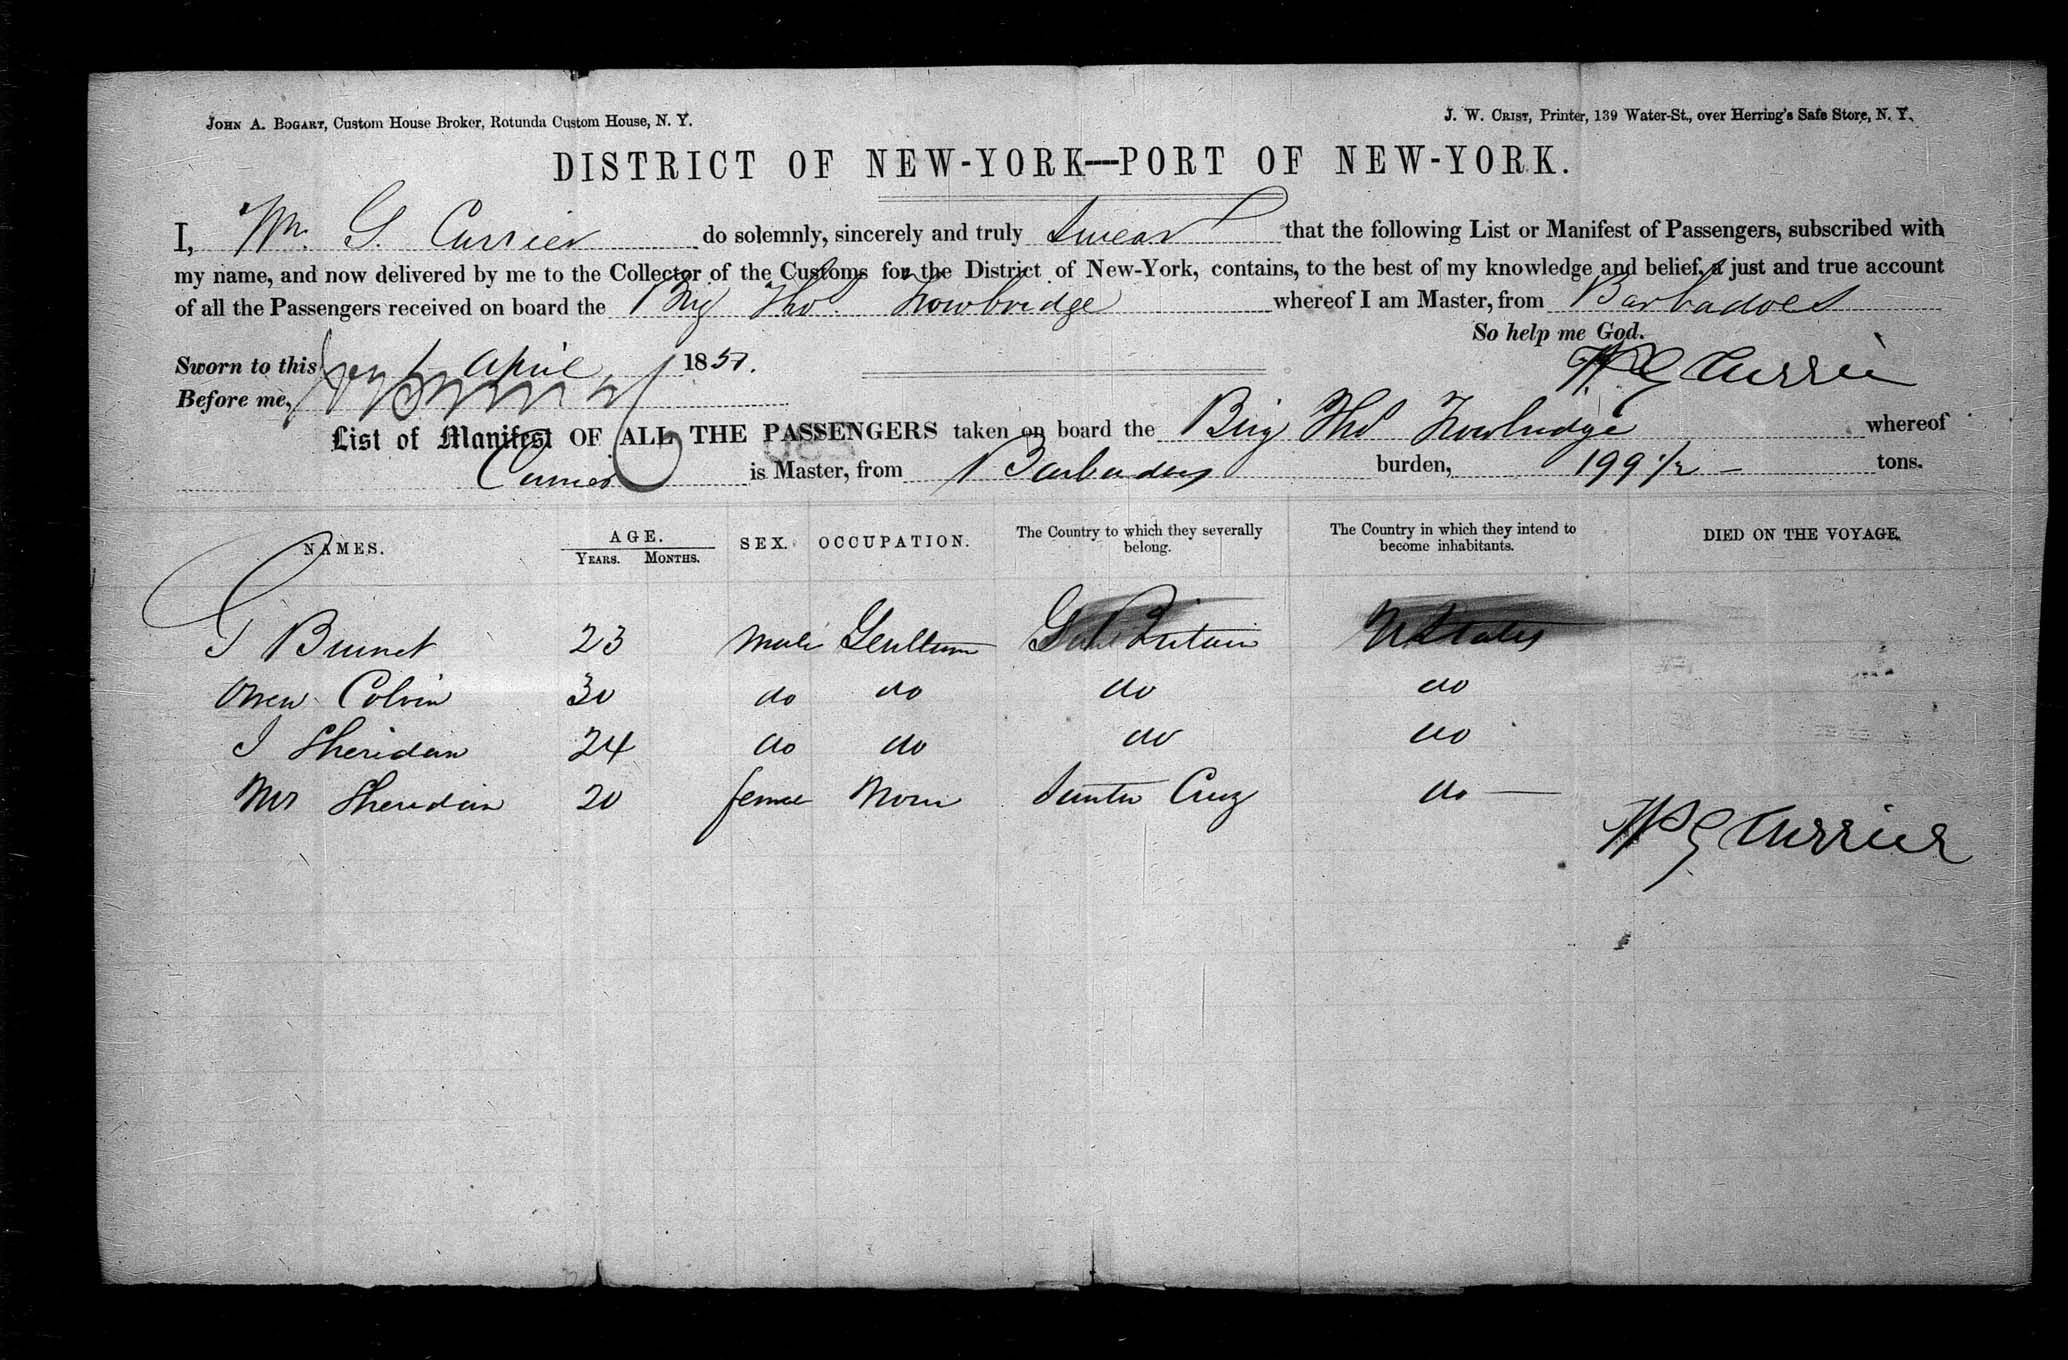 JOHN A. BOGART, Custom House Broker, Rotunda Custom House, N. Y.
J. W. CRIST, Printer, 139 Water-St., over Herring's Safe Store, N. Y.
DISTRICT OF NEW-YORK—PORT OF NEW-YORK.
I, Wm. G. Currier do solemnly, sincerely and truly swear that the following List or Manifest of Passengers, subscribed with
my name, and now delivered by me to the Collector of the Customs for the District of New-York, contains, to the best of my knowledge and belief, a just and true account
of all the Passengers received on board the Brig Tho. Trowbridge whereof I am Master, from Barbadoes
So help me God.
Sworn to this April 1851.
W G Currier
Before me,
List or Manifest OF ALL THE PASSENGERS taken on board the Brig Tho Trowbridge whereof
Currier is Master, from Barbadoes burden, 199 1/2 - tons.
NAMES. AGE. SEX. OCCUPATION. The Country to which they severally belong. The Country in which they intend to become inhabitants. DIED ON THE VOYAGE.
YEARS. MONTHS.
G 23 male Gentlem Gt Britain U States
Owen Colvin 30 do do do do
J Sheridan 24 do do do do
Mrs Sheridan 20 None Santa Cruz do —
W G Currier